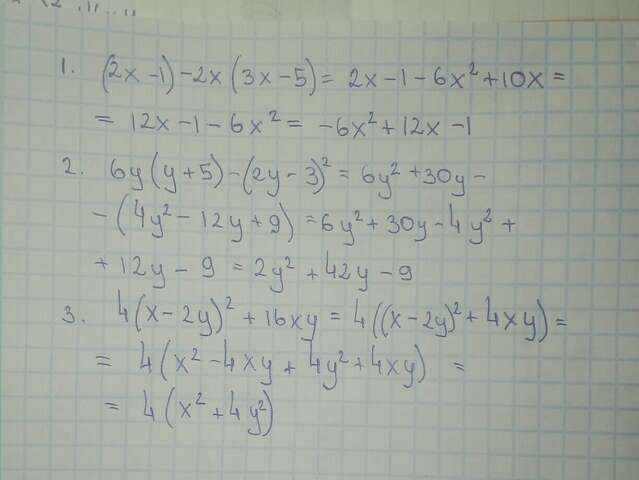 1. (2x-1)-2x(3x-5)=2x-1-6x²+10x=
=12x-1-6x²=-6x²+12x-1
2. 6y(y+5)-(2y-3)²=6y²+30y-
-(4y²-12y+9)=6y²+30y-4y²+
+12y-9=2y²+42y-9
3. 4(x-2y)²+16xy=4((x-2y)²+4xy)=
=4(x²-4xy+4y²+4xy)=
=4(x²+4y²)